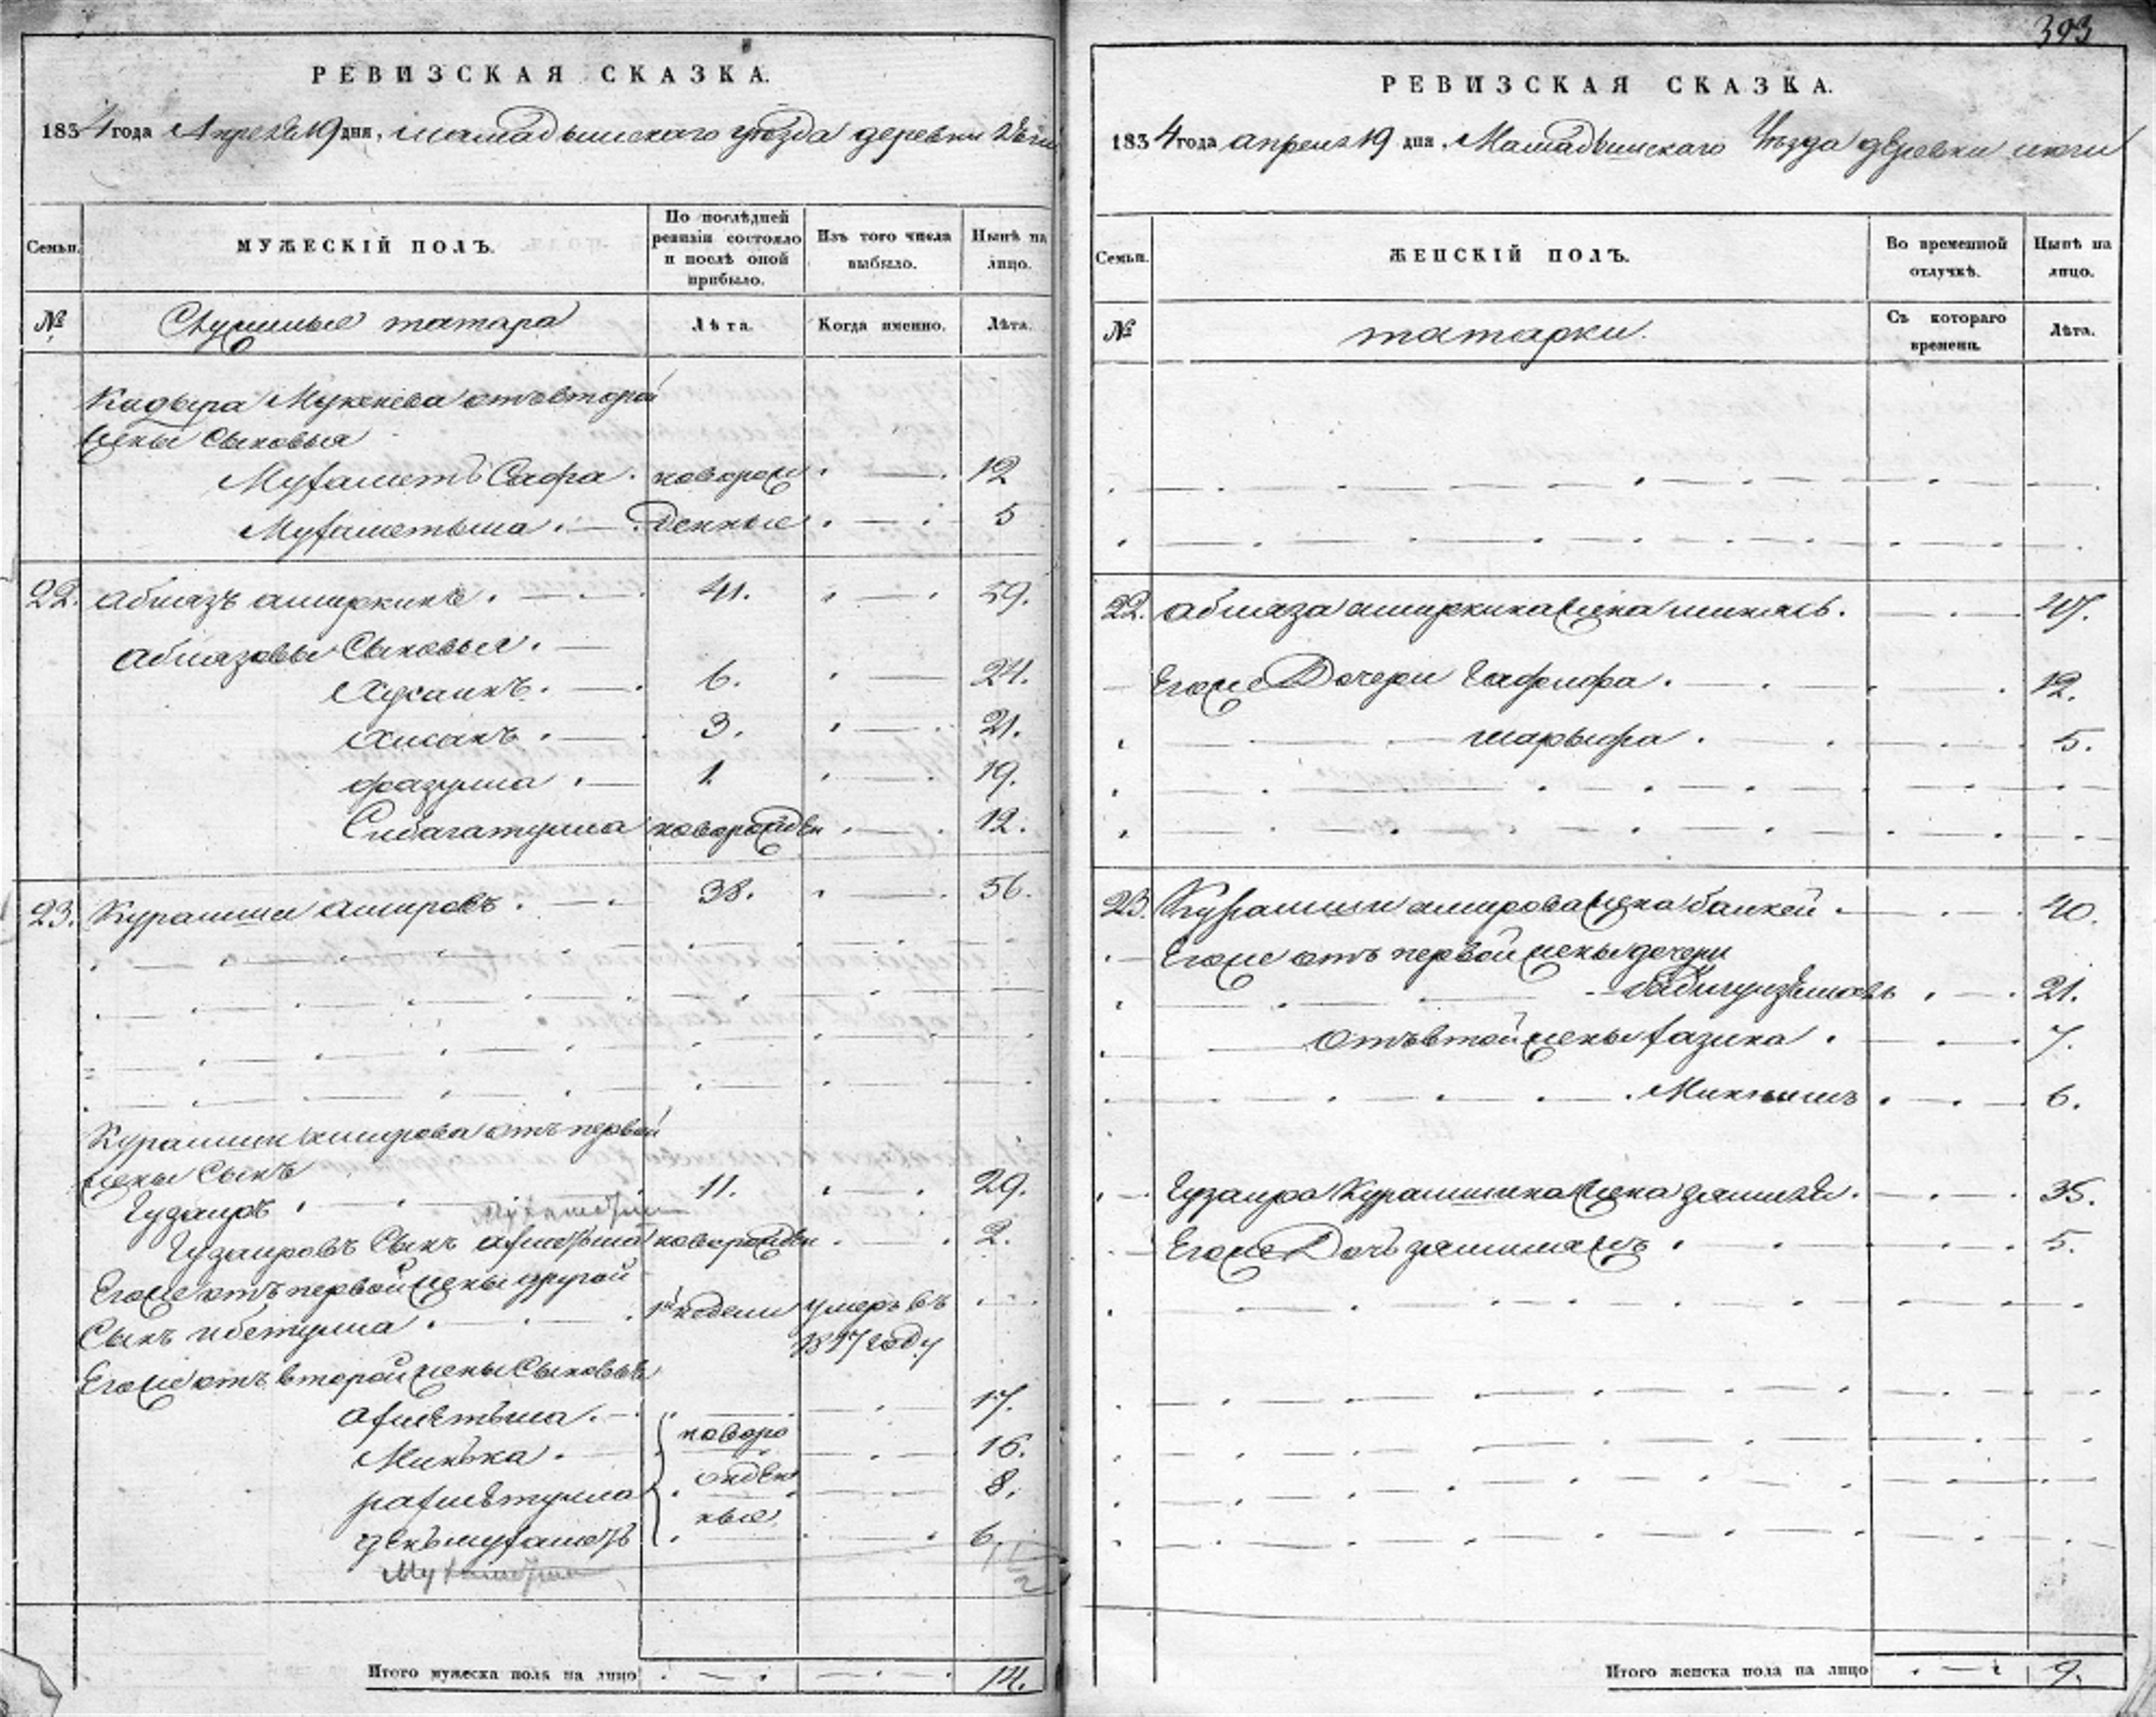 393
РЕВИЗСКАЯ СКАЗКА.
1834 года Апреля 19 дня, мамадышскаго уѣзда деревни
Семьи.
МУЖЕСКІЙ ПОЛЪ.
По послѣдней ревизіи состояло и послѣ оной прибыло.
Изъ того числа выбыло.
Нынѣ на лицо.
№
Служилые татара
Лѣта.
Когда именно.
Лѣта.
Кадыра Мукеева отъ второй
жены Сыновья
Мухаметъ Сафа. новорож 12
Мухаметьша денные 5
22. абляз амиркинъ. 41. 59.
аблязовы Сыновья.
Хусаинъ. 6. 24.
Хисанъ. 3. 21.
фазулла. 1. 19.
Сибагатулла новорожден 12.
23. Курамша амировъ. 38. 56.
Курамши амирова отъ первой
жены Сынъ
Гузаиръ. 11. 29.
Гузаировъ Сынъ новорожден 2.
Егоже отъ первой жены другой
Сынъ ибетулла. недели умеръ въ
1817 году
Егоже отъ второй жены Сыновья
ахметьша. 17.
новоро
Минька. 16.
жден
рахметулла 8.
ные
6.
Итого мужеска пола на лицо 14.
РЕВИЗСКАЯ СКАЗКА.
1834 года апреля 19 дня, Мамадышскаго Уѣзда деревни
Семьи.
ЖЕНСКІЙ ПОЛЪ.
Во временной отлучкѣ.
Нынѣ на лицо.
№
татарки.
Съ котораго времени.
Лѣта.
22. абляза амиркина жена 47.
Егоже Дочери Гафифа. 12.
шарыфа. 5.
23. Курамши амирова жена банкей. 40.
Егоже отъ первой жены дочери
21.
отъ втой жены хазина. 7.
6.
Гузаира Курамшина жена 35.
Егоже Дочь 5.
Итого женска пола на лицо 9.